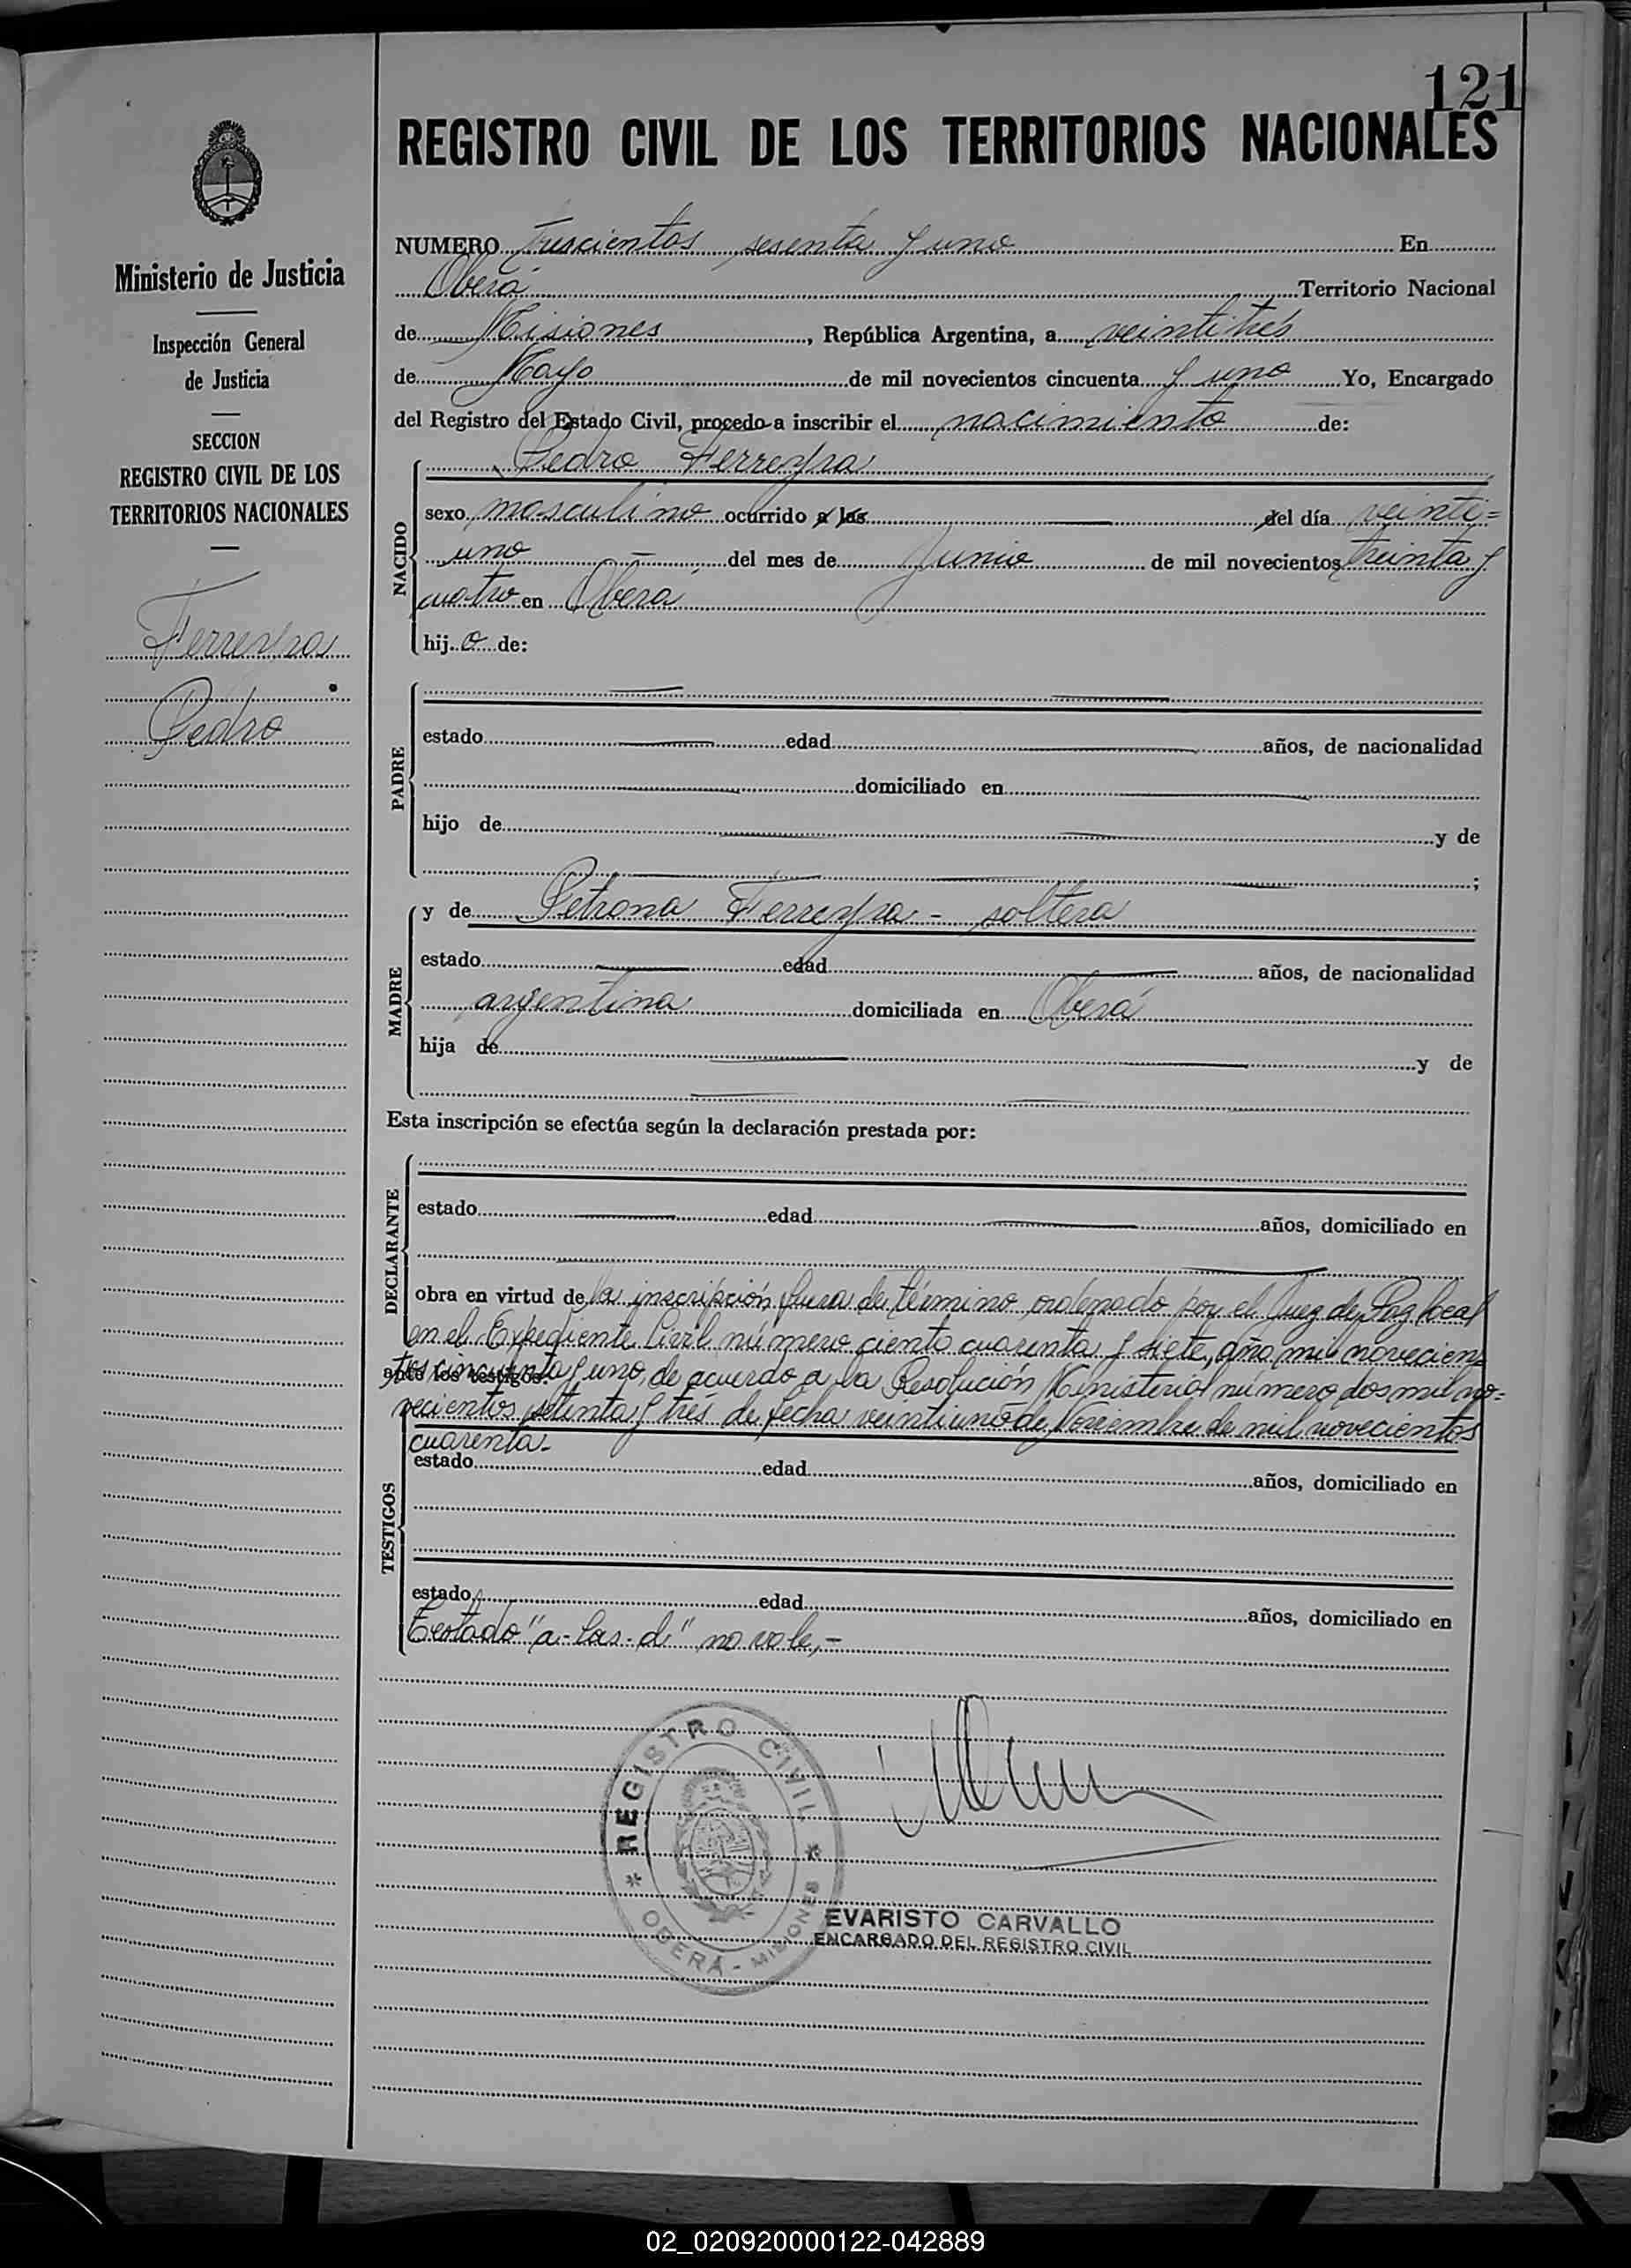 121
REGISTRO CIVIL DE LOS TERRITORIOS NACIONALES
Ministerio de Justicia
Inspección General
de Justicia
SECCION
REGISTRO CIVIL DE LOS
TERRITORIOS NACIONALES
Ferreyra
Pedro
NUMERO trescientos sesenta y uno En
Oberá Territorio Nacional
de Misiones, República Argentina, a veintitrés
de Mayo de mil novecientos cincuenta y uno Yo, Encargado
del Registro del Estado Civil, procedo a inscribir el nacimiento de:
NACIDO
Pedro Ferreyra
sexo masculino ocurrido a las del día veinti=
uno del mes de Junio de mil novecientos treinta y
cuatro en Oberá
hijo de:
PADRE
estado edad años, de nacionalidad
domiciliado en
hijo de y de
;
MADRE
y de Petrona Ferreyra - soltera
estado edad años, de nacionalidad
argentina domiciliada en Oberá
hija de y de
Esta inscripción se efectúa según la declaración prestada por:
DECLARANTE
estado edad años, domiciliado en
obra en virtud de la inscripción fuera de término ordenado por el Juez de Paz local
en el Expediente Civil número ciento cuarenta y siete, año mil novecien=
ante los testigos:
tos cincuenta y uno, de acuerdo a la Resolución Ministerial número dos mil no=
vecientos setenta y trés de fecha veintiuno de Noviembre de mil novecientos
cuarenta.-
TESTIGOS
estado edad años, domiciliado en
estado edad años, domiciliado en
Testado "a-las-d" no vale,-
REGISTRO CIVIL
OBERÁ - MISIONES
EVARISTO CARVALLO
ENCARGADO DEL REGISTRO CIVIL
02_020920000122-042889